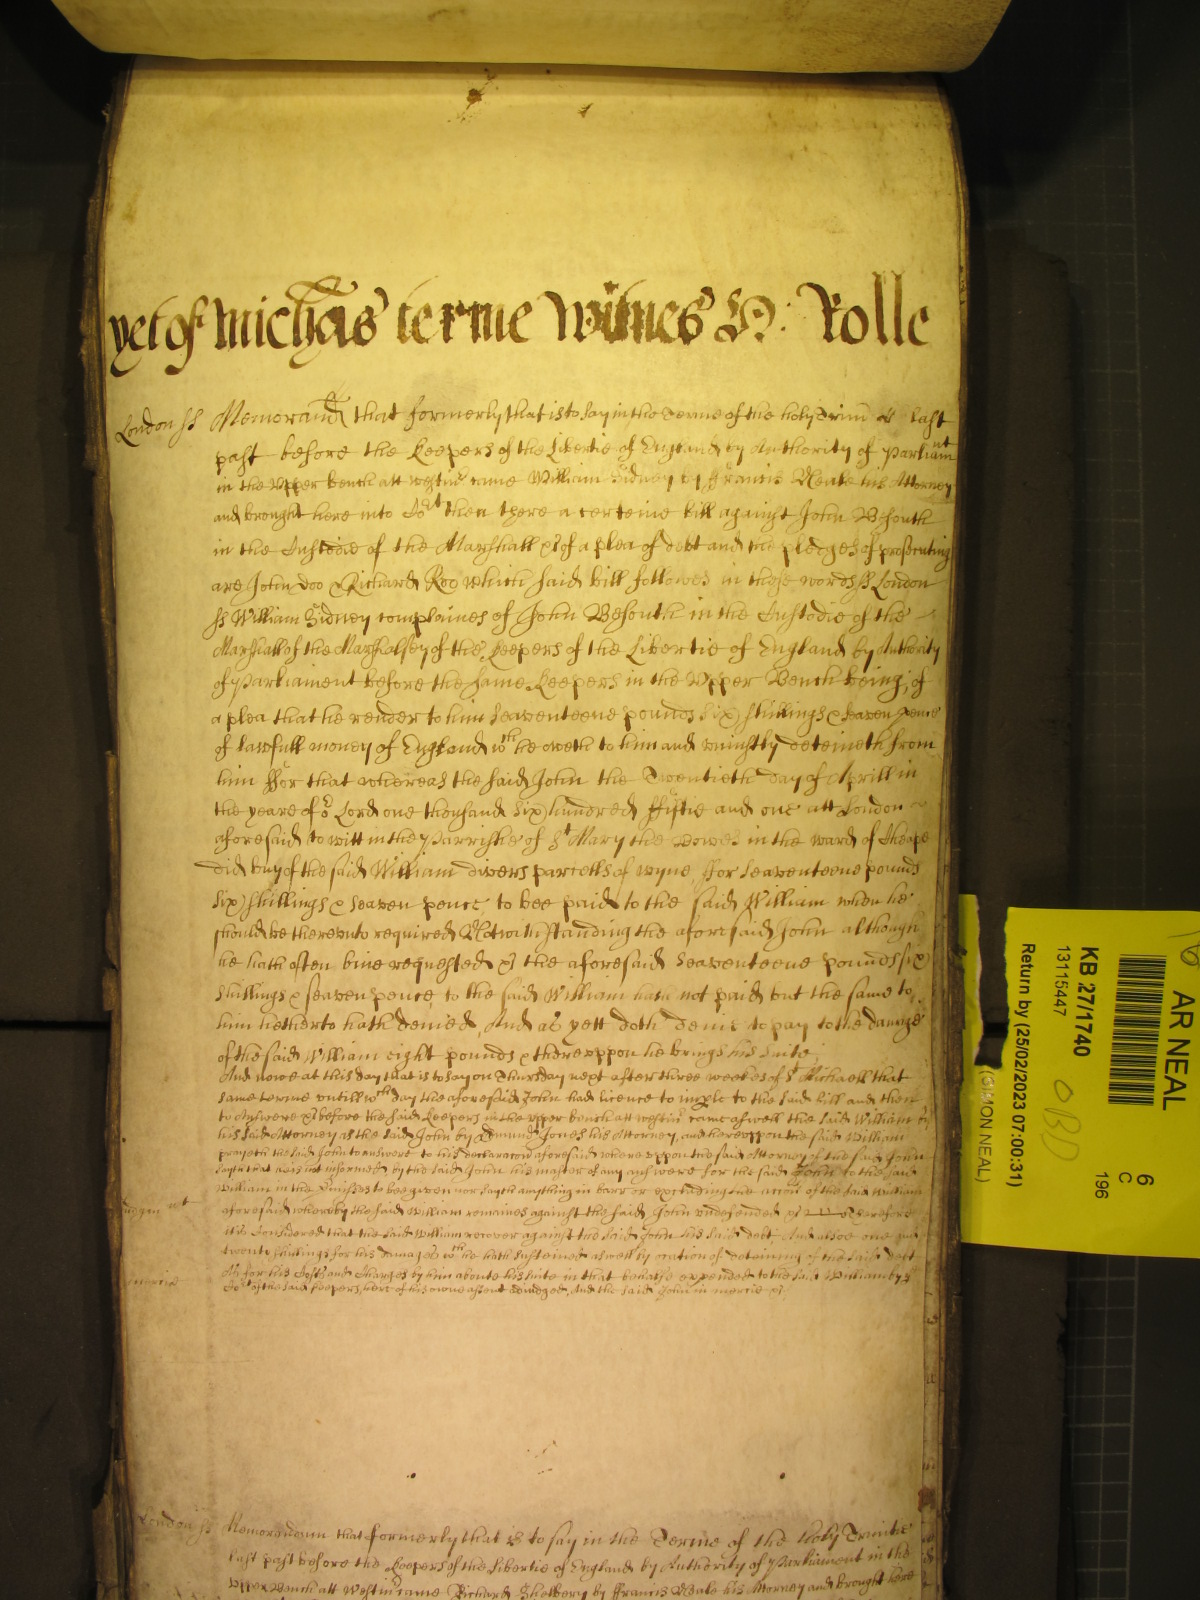 yet of Michas terme Witnes H: Rolle
London ss Memorand that formerly that is to say in the Terme of the holy Trini last
past before the Keepers of the Libertie of England by Authority of Parliamt
in the Upper bench att westmr came William Sidney by Francis Neale his Attorney
and brought here into Cort then there a certeine bill against John Besouth
in the Custodie of the Marshall &c of a plea of debt and the pledges of prosecuting
are John doo & Richard Roo which said bill followes in those words ss London
ss William Sidney complaines of John Besouth in the Custodie of the
Marshall of the Marshalsey of the Keepers of the Libertie of England by Authority
of Parliament before the same Keepers in the Upper Bench being, of
a plea that he render to him seaventeene pounds six shillings & seaven pence
of lawfull money of England wch he oweth to him and uniustly deteineth from
him ffor that whereas the said John the Twentieth day of Aprill in
the yeare of or Lord one thousand six hundred ffiftie and one att London
aforesaid to witt in the Parrishe of St Mary the Bowes in the ward of Cheape
did buy of the said William divers parcells of wyne ffor seaventeene pounds
six shillings & seaven pence to bee paid to the said William when he
should be thereunto required Notwithstanding the aforesaid John although
he hath often bine requested &c the aforesaid seaventeene pounds six
shillings & seaven pence to the said William hath not paid but the same to
him hetherto hath denied And as yett doth denie to pay to the damage
of the said William eight pounds & thereuppon he brings his suite;
And nowe at this day that is to say on Thursday next after three weekes of St Michaell that
same terme untill wch day the aforesaid John had licence to imparle to the said bill and then
to Answere &c before the said Keepers in the upper bench att westmr came aswell the said William by
his said Attorney as the said John by Edmund Jones his Attorney, and hereuppon the said William
prayeth the said John to answere to his declaracion aforesaid whereuppon the said Attorney of the said John
sayth that he is not informed by the said John his master of any answere for the said John to the said
William in the premisses to bee given nor sayth anything in barr or excluding the accion of the said William
aforesaid whereby the said William remaines against the said John undefended &c Therefore
it is Considered that the said William recover against the said John his said debt And alsoe
twenty shillings for his damages wch he hath susteined aswell by occasion of deteining of the said debt
as for his Costs and Charges by him aboute his suite in that behalfe expended to the said William by the
Cort of the said Keepers here of his owne assent adiudged, And the said John in mercie &c
London ss Memorandum that formerly that is to say in the Terme of the holy Trinitie
last past before the Keepers of the libertie of England by Authority of Parliament in the
Upper Bench att Westmr came Richard by Francis Neale his Attorney and brought here
AR NEAL
6
C
196
KB 27/1740
13115447
Return by (25/02/2023 07:00:31)
(SIMON NEAL)